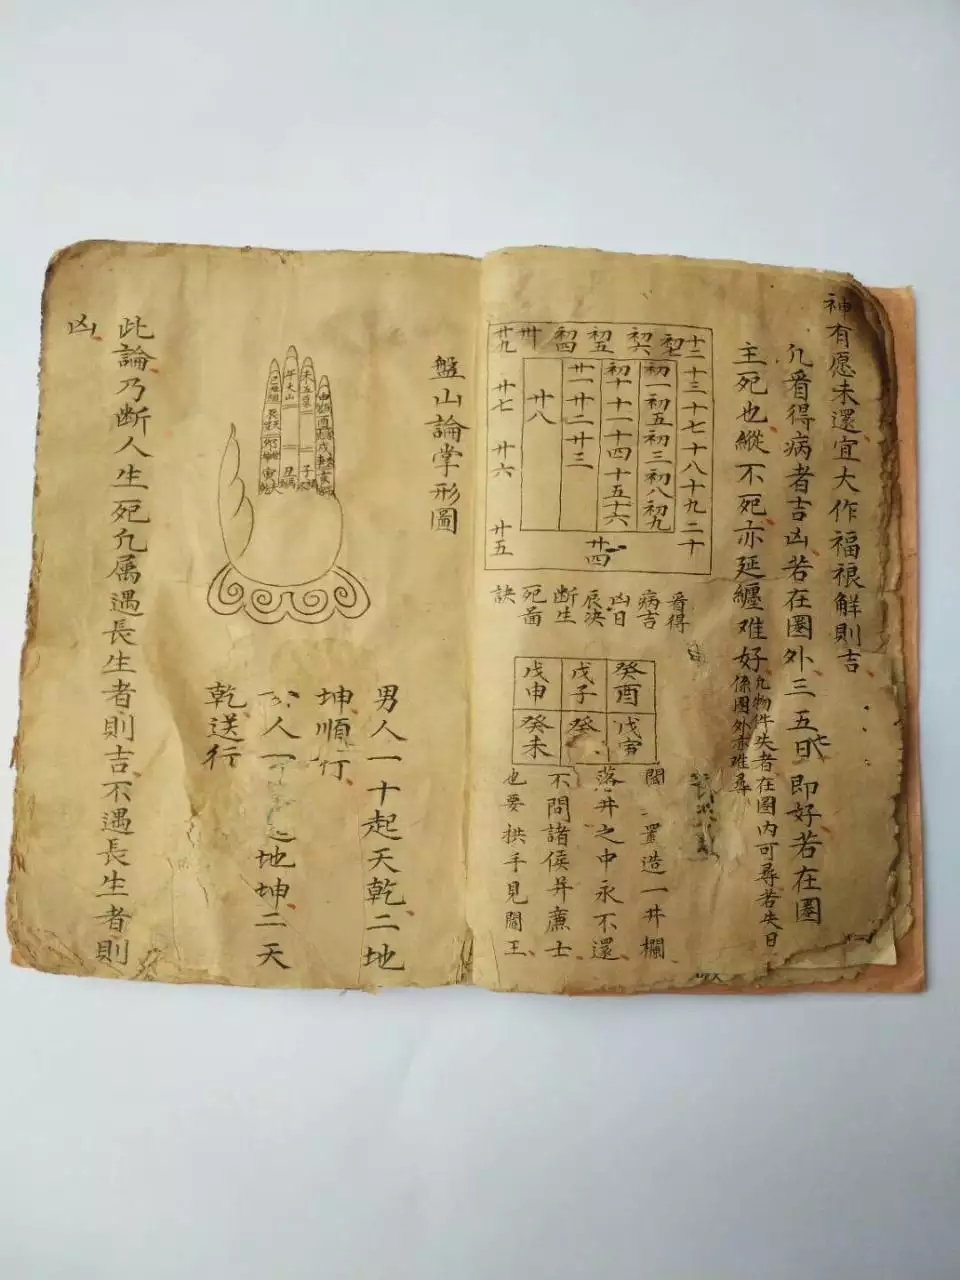 神有愿未還宜大作福禳解則吉
凢看得病者吉凶若在圏外三五日即好若在圏
主死也縱不死亦延纏难好
凢物件失者在圏内可尋若失日
係圏外亦难尋
十二 十三 十七 十八 十九 二十
初七
初六
初五
初四
卅
廿九
廿七
廿六
廿五
初一 初五 初三 初八 初九
初十 十一 十四 十五 十六
廿一 廿二 廿三
廿八
廿四
看得
病吉
凶日
辰决
断生
死面
訣
癸酉 戊子 戊申
戊寅 癸 癸未
置造一井欄
落井之中永不還
不問諸侯并亷士
也要拱手見閻王
盤山論掌形圖
男人一十起天乾二地
坤順行
人一 地坤二天
乾送行
此論乃断人生死凢属遇長生者則吉不遇長生者則
凶